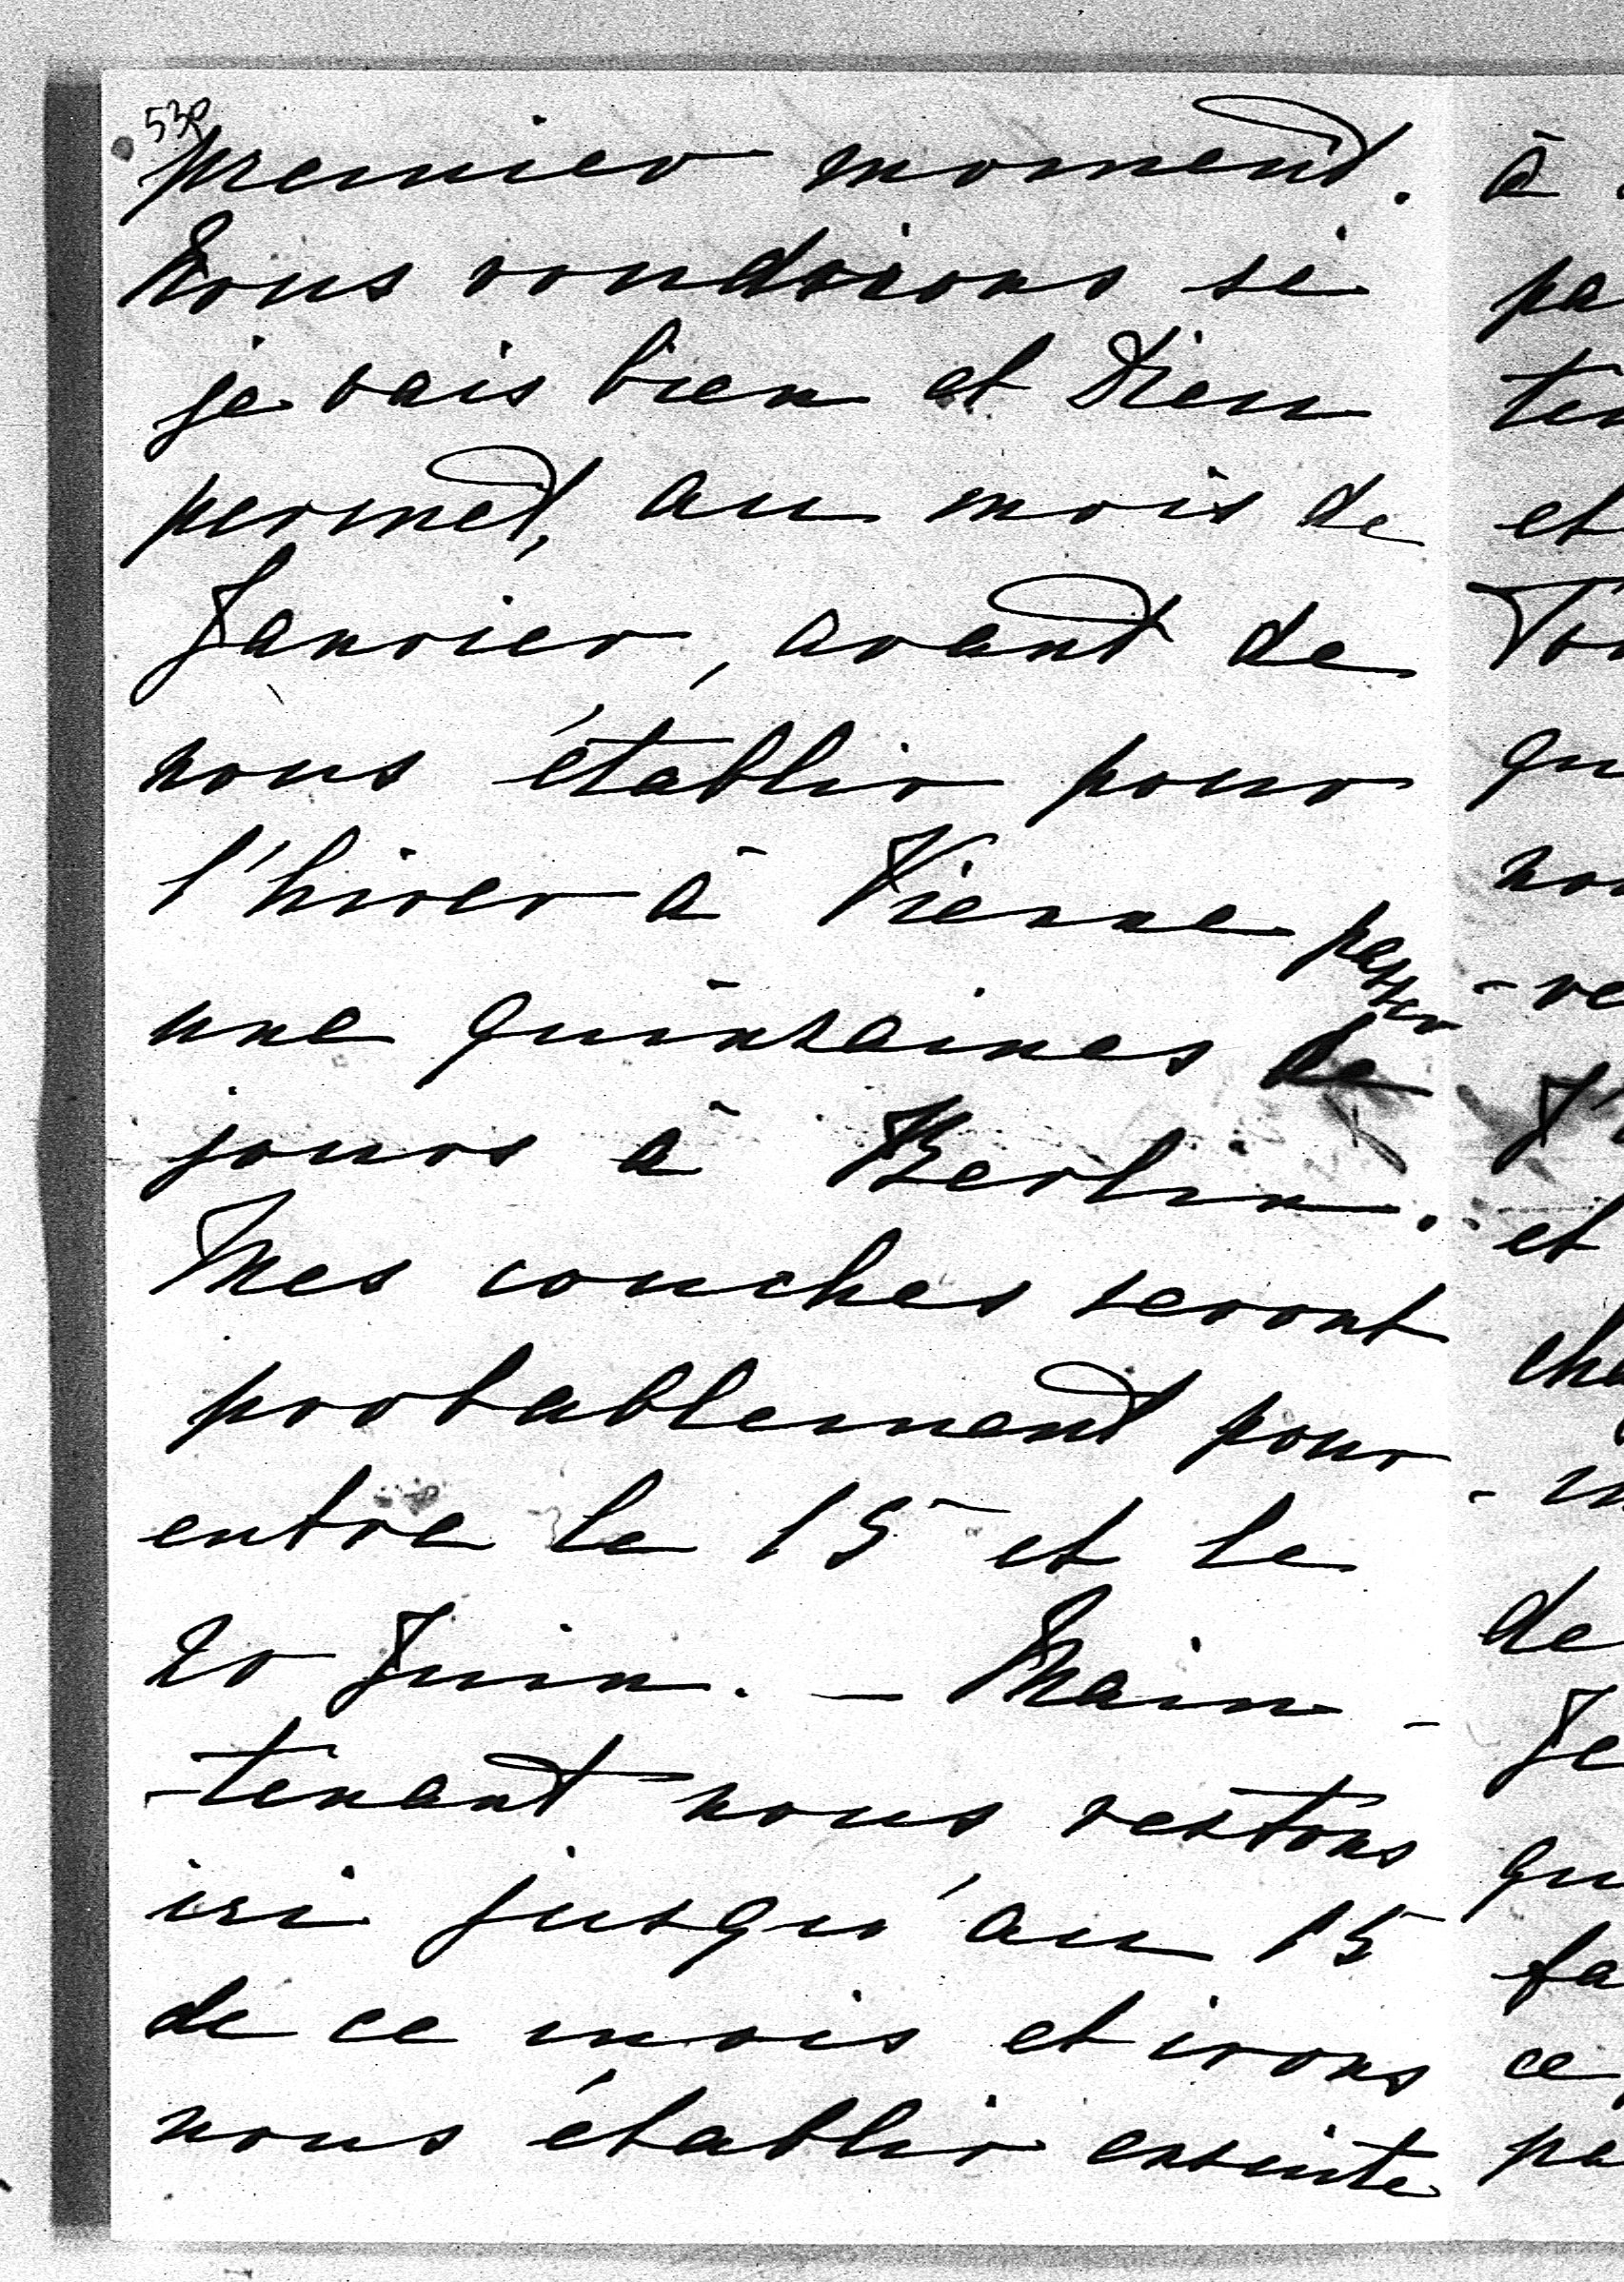 premier moment.
Nous voudrions si
je vais bien et Dieu
permet, au mois de
Janvier, avant de
nous établir pour
l'hiver à Vienne passer
une quinzaines de
jours à Berlin.
Mes couches seront
probablement pour
entre le 15 et le
20 Juin. — Main-
-tenant nous restons
ici jusqu'au 15
de ce mois et irons
nous établir ensuite
à
pa
et
qu
- ve
et
de
Je
qu
fa
ce
pa